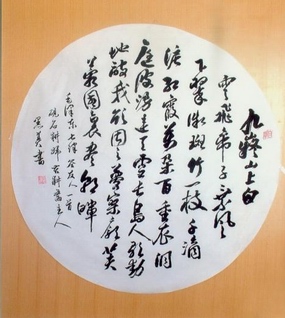 九嶷山上白
云飞帝子乘风
下翠微斑竹一枝千滴
泪红霞万朵百重衣洞
庭波涌连天雪长岛人歌动
地诗我欲因之梦寥廓芙
蓉国里尽朝晖
毛泽东七律答友人一首
主人
书